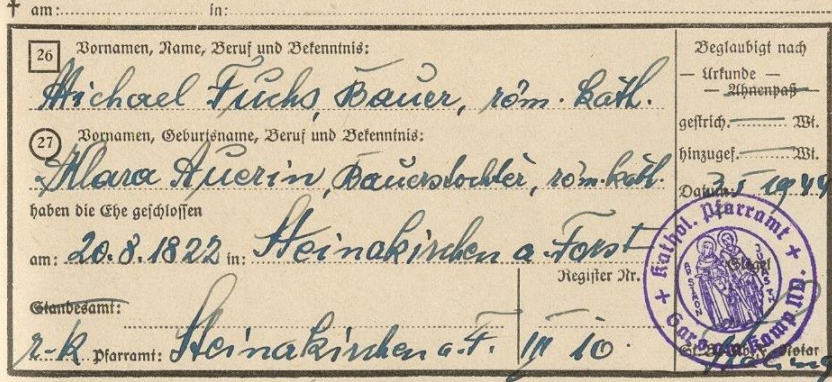 † am: in:
26 Vornamen, Name, Beruf und Bekenntnis:
Michael Fuchs, Bauer, röm. kath.
27 Vornamen, Geburtsname, Beruf und Bekenntnis:
Klara Auerin, Bauerstochter, röm. kath.
haben die Ehe geschlossen
am: 20.8.1822 in: Steinakirchen a. Forst
Register Nr.
Standesamt:
r-k Pfarramt: Steinakirchen a. F. III 10.
Beglaubigt nach
— Urkunde —
— Ahnenpaß —
gestrich. Wt.
hinzugef. Wt.
Datum: 1944
+ Kathol. Pfarramt +